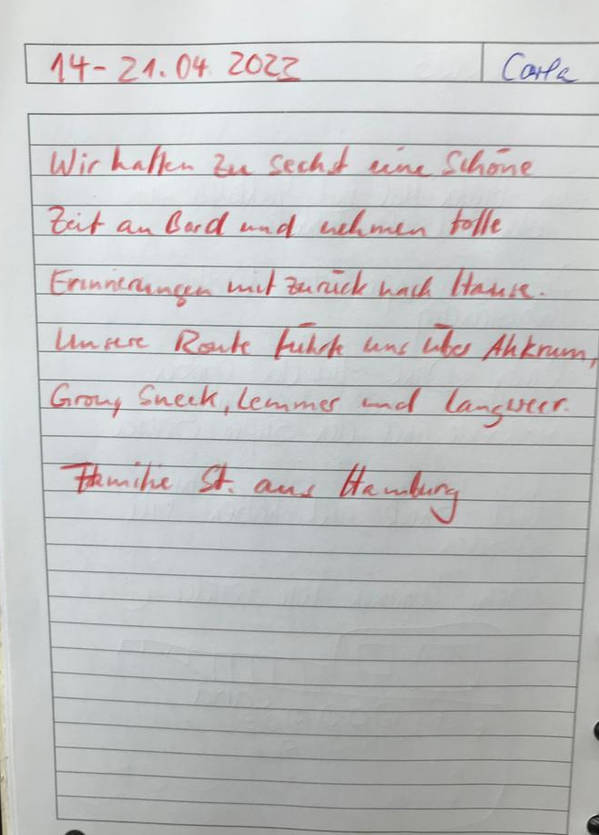 14-21.04 2022 Carla
Wir hatten zu sechst eine schöne
Zeit an Bord und nehmen tolle
Erinnerungen mit zurück nach Hause.
Unsere Route führte uns über Ahkrum,
Grouw, Sneek, Lemmer und Langweer.
Familie St. aus Hamburg